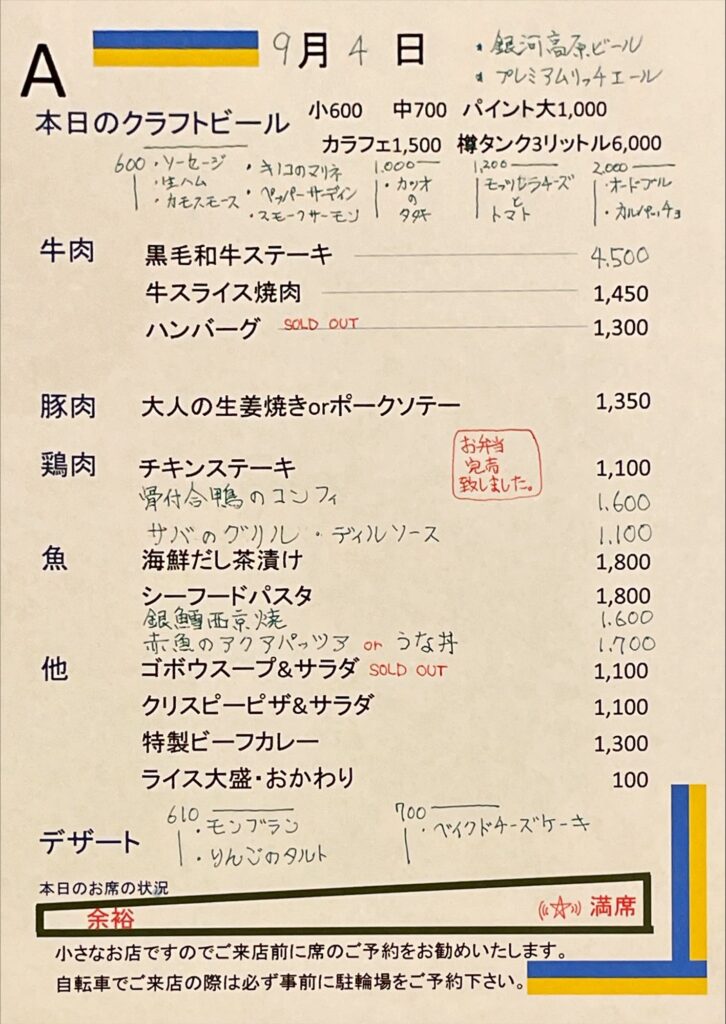 A
9月4日
・銀河高原ビール
・プレミアムリッチエール
本日のクラフトビール 小600 中700 パイント大1,000
カラフェ1,500 樽タンク3リットル6,000
600
・ソーセージ
・生ハム
・カモスモース
・キノコのマリネ
・ペッパーサーディン
・スモークサーモン
1,000
・カツオ
の
タタキ
1,200
モッツァレラチーズ
と
トマト
2,000
・オードブル
・カルパッチョ
牛肉 黒毛和牛ステーキ 4,500
牛スライス焼肉 1,450
ハンバーグ SOLD OUT 1,300
豚肉 大人の生姜焼きorポークソテー 1,350
鶏肉 チキンステーキ 1,100
お弁当
完売
致しました。
骨付合鴨のコンフィ 1.600
サバのグリル・ディルソース 1.100
魚 海鮮だし茶漬け 1,800
シーフードパスタ 1,800
銀鱈西京焼 1.600
赤魚のアクアパッツア or うな丼 1.700
他 ゴボウスープ&サラダ SOLD OUT 1,100
クリスピーピザ&サラダ 1,100
特製ビーフカレー 1,300
ライス大盛・おかわり 100
デザート
610
・モンブラン
・りんごのタルト
700
・ベイクドチーズケーキ
本日のお席の状況
余裕 ((☆)) 満席
小さなお店ですのでご来店前に席のご予約をお勧めいたします。
自転車でご来店の際は必ず事前に駐輪場をご予約下さい。